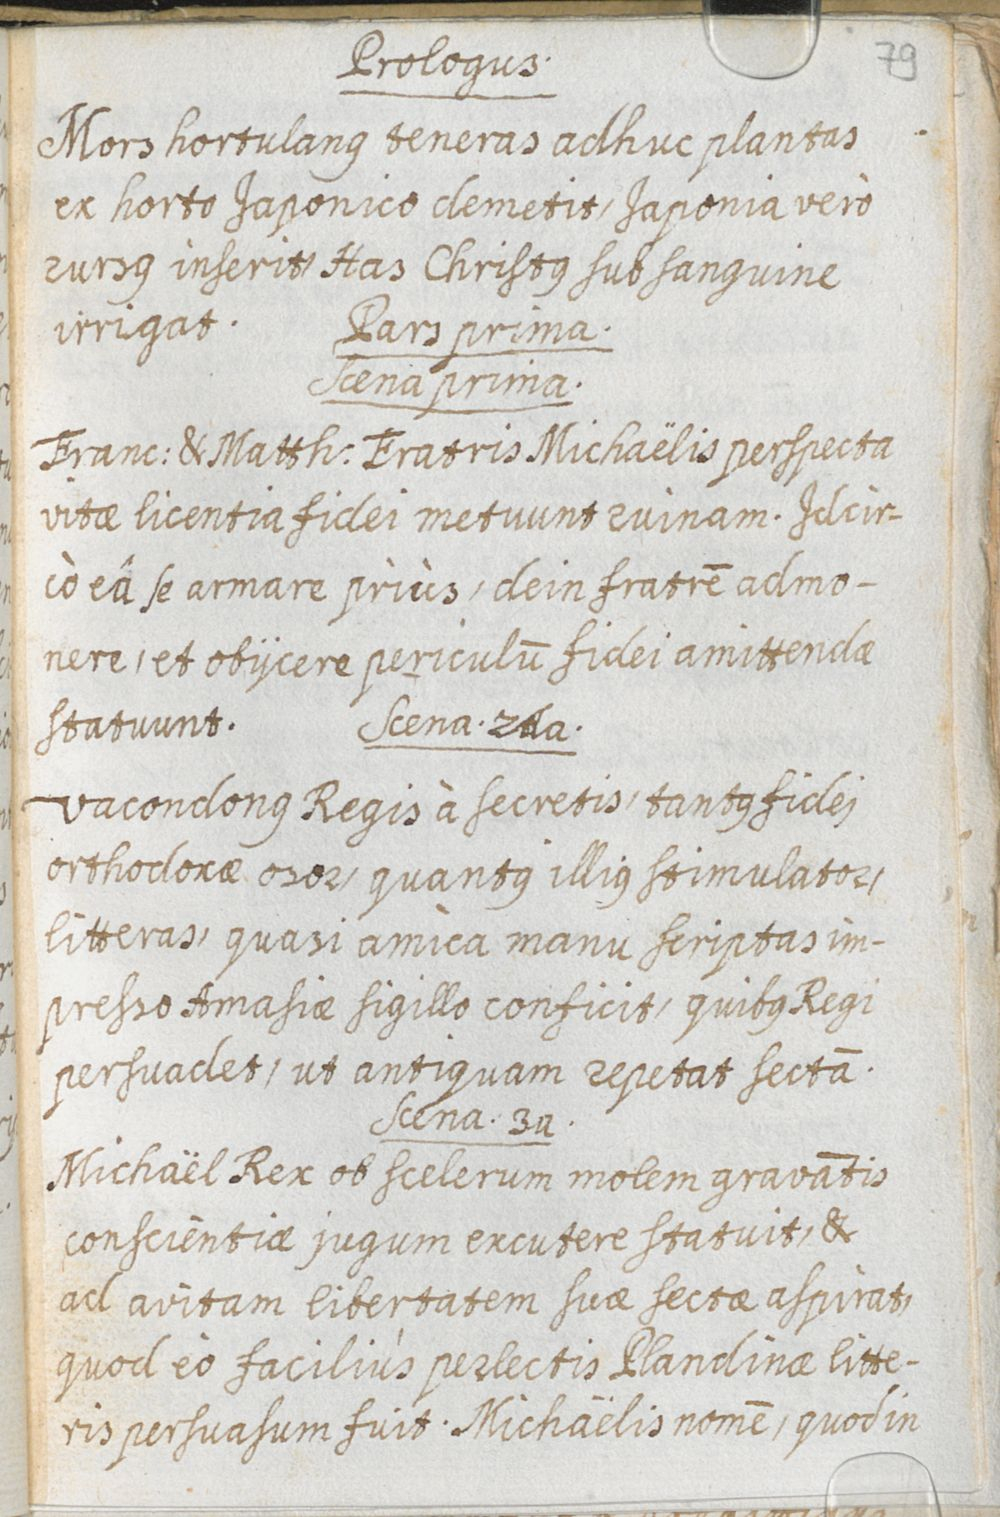 Prologus.
79
Mors hortulanꝰ teneras adhuc plantas
ex horto Japonico demetit, Japonia verò
rursꝰ inserit, Has Christꝰ sub sanguine
irrigat. Pars prima.
Scena prima.
Franc: & Matth: Fratris Michaëlis perspecta
vitæ licentia fidei metuunt ruinam. Idcir-
cò eâ se armare priùs, dein fratrē admo-
nere, et obijcere periculū fidei amittendæ
statuunt. Scena. 2da.
Vacondonꝰ Regis à secretis, tantꝰ fidej
orthodoxæ osor, quantꝰ illiꝰ stimulator,
litteras, quasi amica manu scriptas im-
presso Amasiæ sigillo conficit, quibꝰ Regi
persuadet, ut antiquam repetat sectā.
Scena. 3a.
Michaël Rex ob scelerum molem gravātis
conscientiæ jugum excutere statuit, &
ad avitam libertatem suæ sectæ aspirat,
quod eò faciliùs perlectis Plandinæ litte-
ris persuasum fuit. Michaëlis nomē, quod in